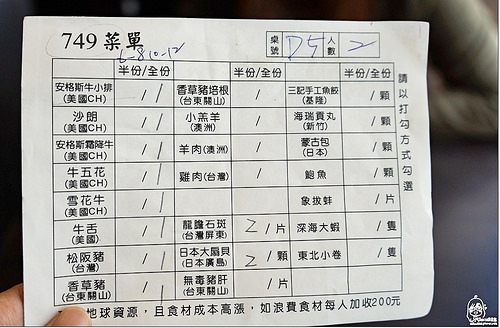 749 菜單
6-8 10-12
桌號 D5 人數 2
半份/全份 半份/全份 半份/全份
安格斯牛小排(美國CH) / 1 香草豬培根(台東關山) / 三記手工魚餃(基隆) /顆
沙朗(美國CH) / 1 小羔羊(澳洲) / 海瑞貢丸(新竹) /顆
安格斯霜降牛(美國CH) / 1 羊肉(澳洲) / 蒙古包(日本) /顆
牛五花(美國CH) / 1 雞肉(台灣) / 鮑魚 /顆
雪花牛(美國CH) / 1 象拔蚌 /片
牛舌(美國) / 1 龍膽石斑(台灣屏東) 2/片 深海大蝦 /隻
松阪豬(台灣) / 1 日本大扇貝(日本廣島) 2/顆 東北小卷 /隻
香草豬(台東關山) / 1 無毒豬肝(台東關山) /片
請以打勾方式勾選
地球資源，且食材成本高漲，如浪費食材每人加收200元